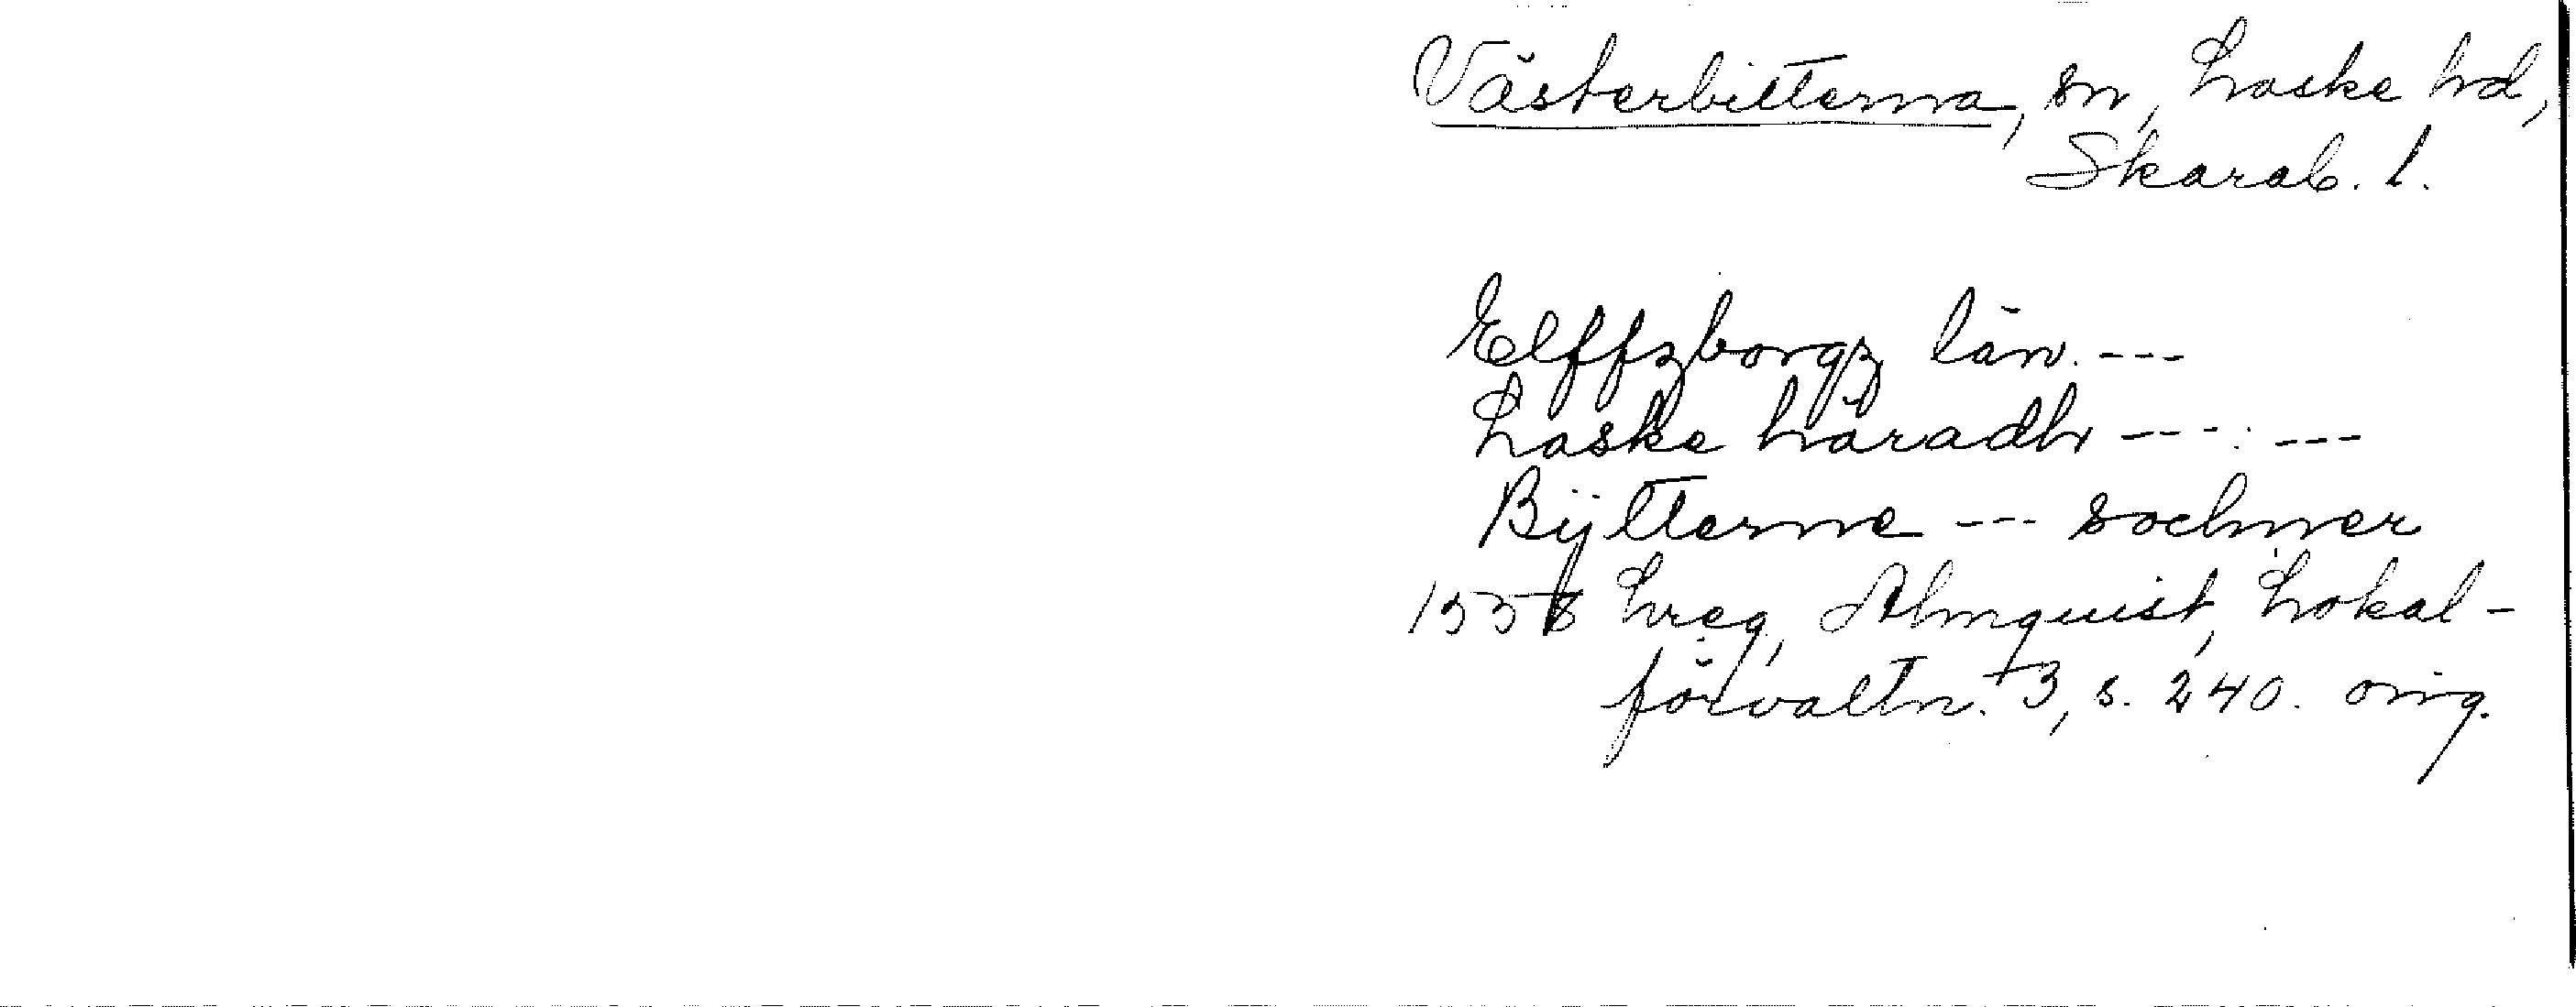 Västerbitterna, sn, Laske hd,
Skarab. l.
Elffzborgz län. ---
Laske häradh --- : ---
Bÿtterne --- sochner
1558 Lreg, Almquist, Lokal-
förvaltn. 3, s. 240. orig.